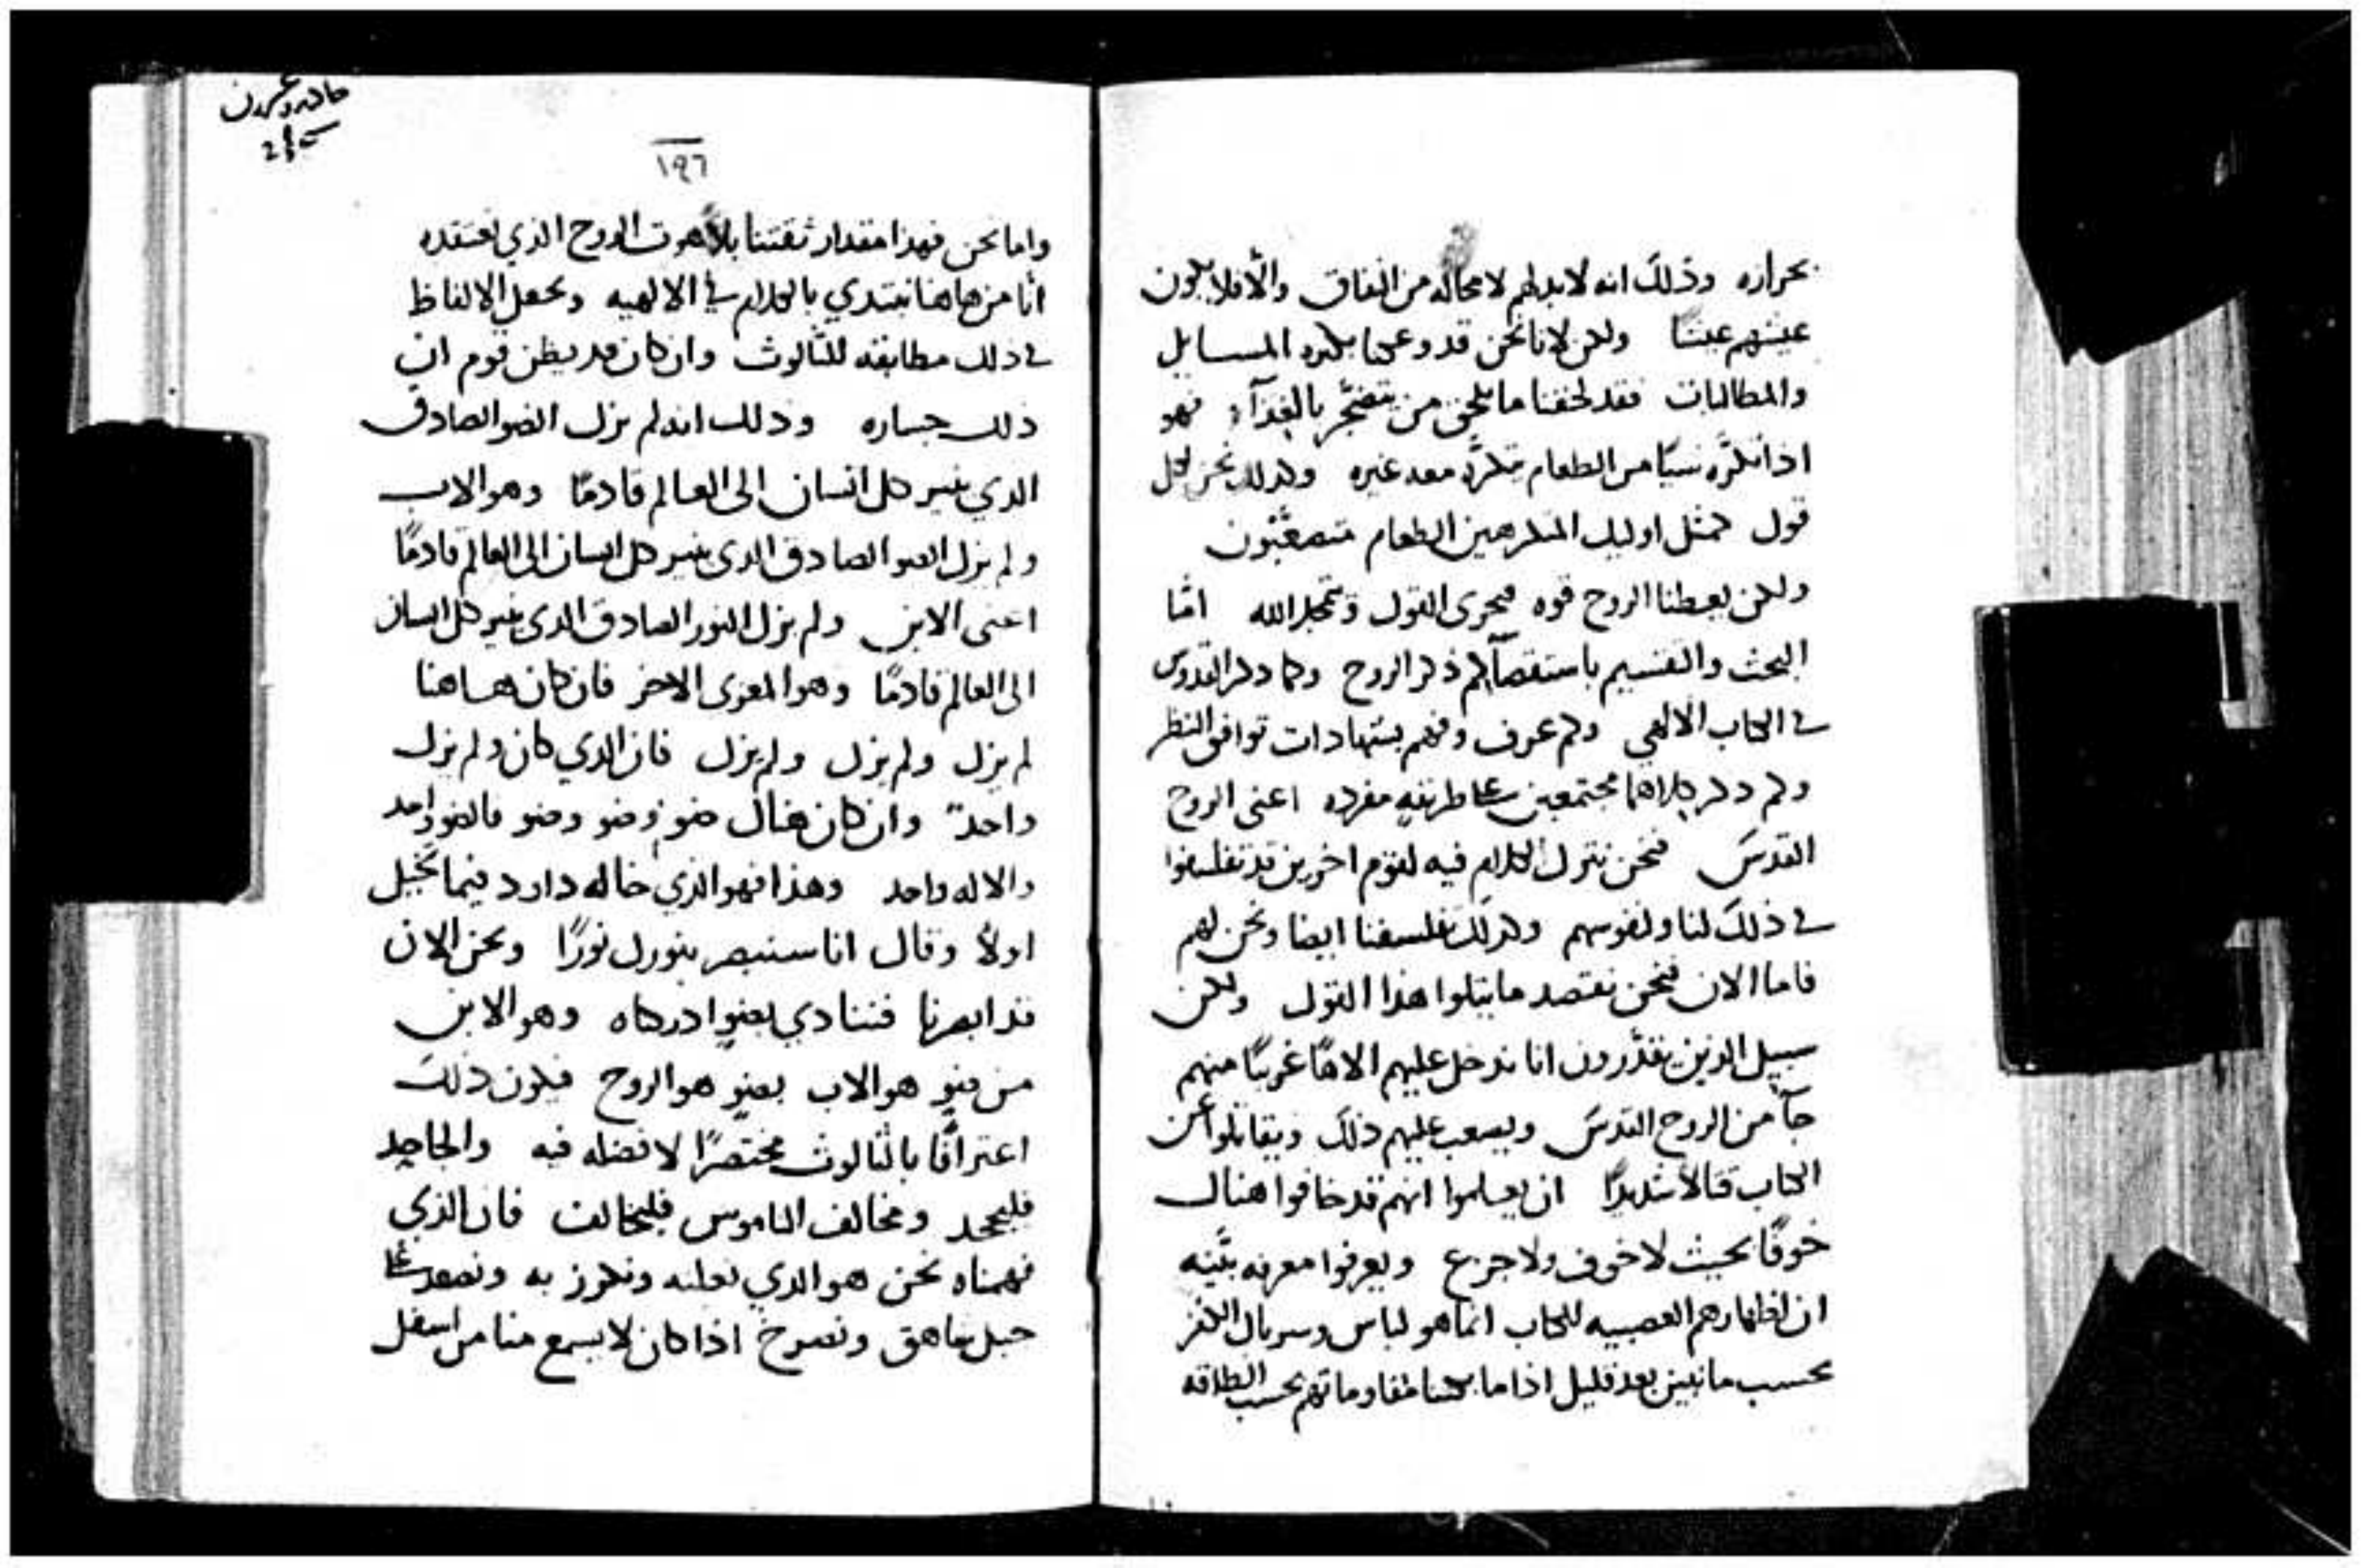 بحراره وذلك انه لابد لهم لا محاله من النفاق والا فلا يكون
عيشهم عيشا ولكن لانا نحن قد وعكنا بكثره المسايل
والمطالبات فقد لحقنا ما يلحق من يتضجر بالغذآء فهو
اذا تكرّه شيًا من الطعام يتكرّه معه غيره وكذلك نحن لكل
قول كمثل اوليك المتكرهين الطعام متصعّبون
ولكن يعطنا الروح قوه فيجرى القول ويتمجد الله امّا
البحث والتقسيم باستقصآ لكم ذكر الروح وكما ذكر القدوس
في الكتاب الالهي وكم عرف وفهم بشهادات توافق النظر
وكم ذكر كلاهما مجتمعين على طريقهٍ مفرده اعنى الروح
القدسَ فنحن نترك الكلام فيه لقوم اخرين قد تفلسفوا
في ذلكَ لنا ولنفوسهم وكذلك تفلسفنا ايضا ونحن لهم
فاما الان فنحن نقتصد ما يتلوا هذا القول ولكن
سبيل الذين يقدّرون انا ندخل عليهم الاهًا غريبًا منهم
جآ من الروح القدسَ ويصعب عليهم ذلكَ ويقاتلوا عن
الكتاب قتالاً شديدًا ان يعلموا انهم قد خافوا هناك
خوفًا بحيث لا خوف ولا جزع ويعرفوا معرفه بيّنه
ان اظهارهم العصبيه للكتاب انما هو لباس وسربال الكفر
بحسب ما نبين بعد قليل اذا ما بكتنا مقاوماتهم بحسب الطاقه
١٩٦
واما نحن فهذا مقدار ثقتنا بلاهوت الروح الذي نعتقده
انا من هاهنا نبتدي بالكلام في الالهيه ونجعل الالفاظ
في ذلك مطابقه للثالوث وان كان قد يظن قوم ان
ذلك جساره وذلك انه لم يزل الضو الصادق
الذي ينير كل انسان الى العالم قادمًا وهو الاب
ولم يزل الضو الصادق الذى ينير كل انسان الى العالم قادمًا
اعنى الابن ولم يزل النور الصادق الذى ينير كل انسان
الى العالم قادمًا وهو المعزى الاخر فان كان هاهنا
لم يزل ولم يزل ولم يزل فان الذي كان ولم يزل
واحدٌ وان كان هناك ضو وضو وضو فالضو واحد
والاله واحد وهذا فهو الذي خاله داود فيما تخيل
اولاً وقال انا سنبصر بنورك نورًا ونحن الان
قد ابصرنا فننادي بضوٍ ادركناه وهو الابن
من ضوٍ هو الاب بضوٍ هو الروح فيكون ذلك
اعترافًا بالثالوث مختصرًا لا فضله فيه والجاحد
فليجحد ومخالف الناموس فليخالف فان الذي
فهمناه نحن هو الذي نعلنه ونكرز به ونصعد على
جبل شاهق ونصرخ اذا كان لا يسمع منا من اسفل